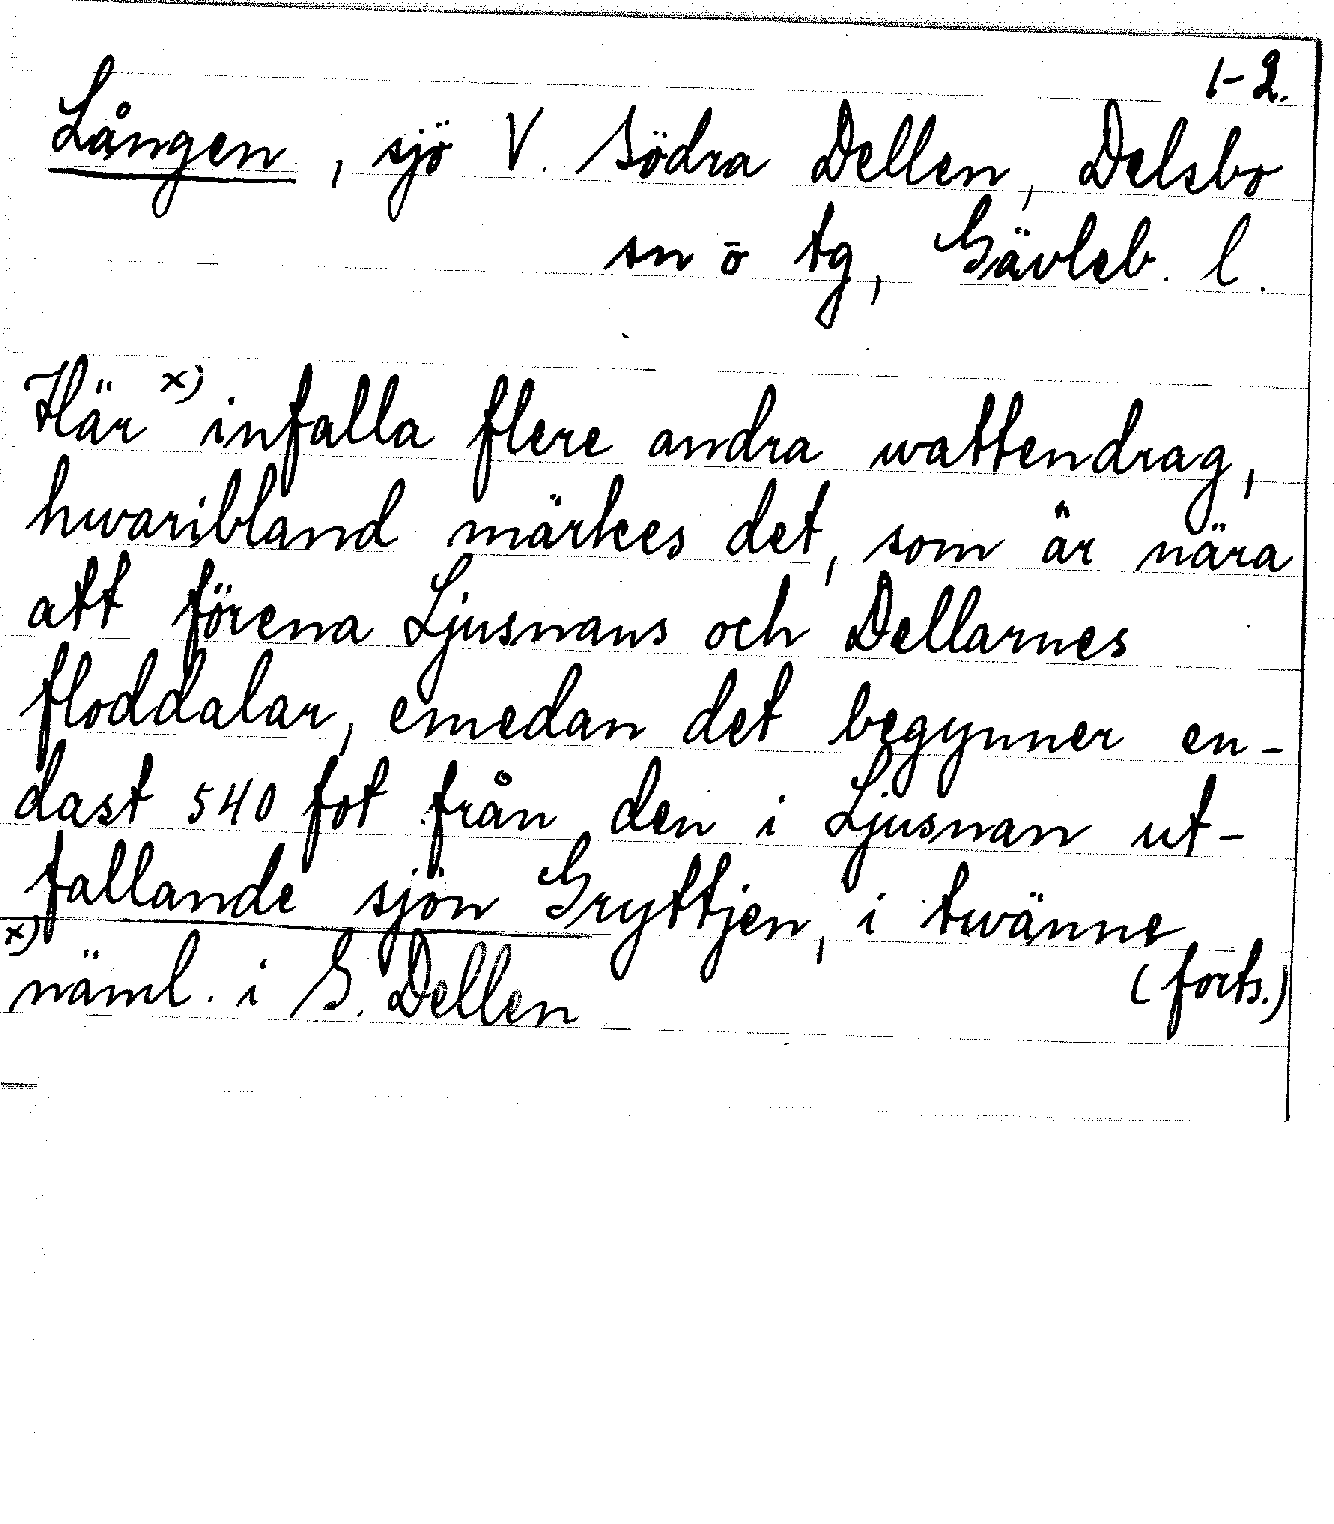 1-2.
Lången, sjö V. Södra Dellen, Delsbo
sn ö tg, Gävleb. l.
Här x) infalla flere andra wattendrag,
hwaribland märkes det, som är nära
att förena Ljusnans och Dellarnes
floddalar, emedan det begynner en-
dast 540 fot från den i Ljusnan ut-
fallande sjön Gryttjen, i twänne
x)
näml. i S. Dellen (forts.)